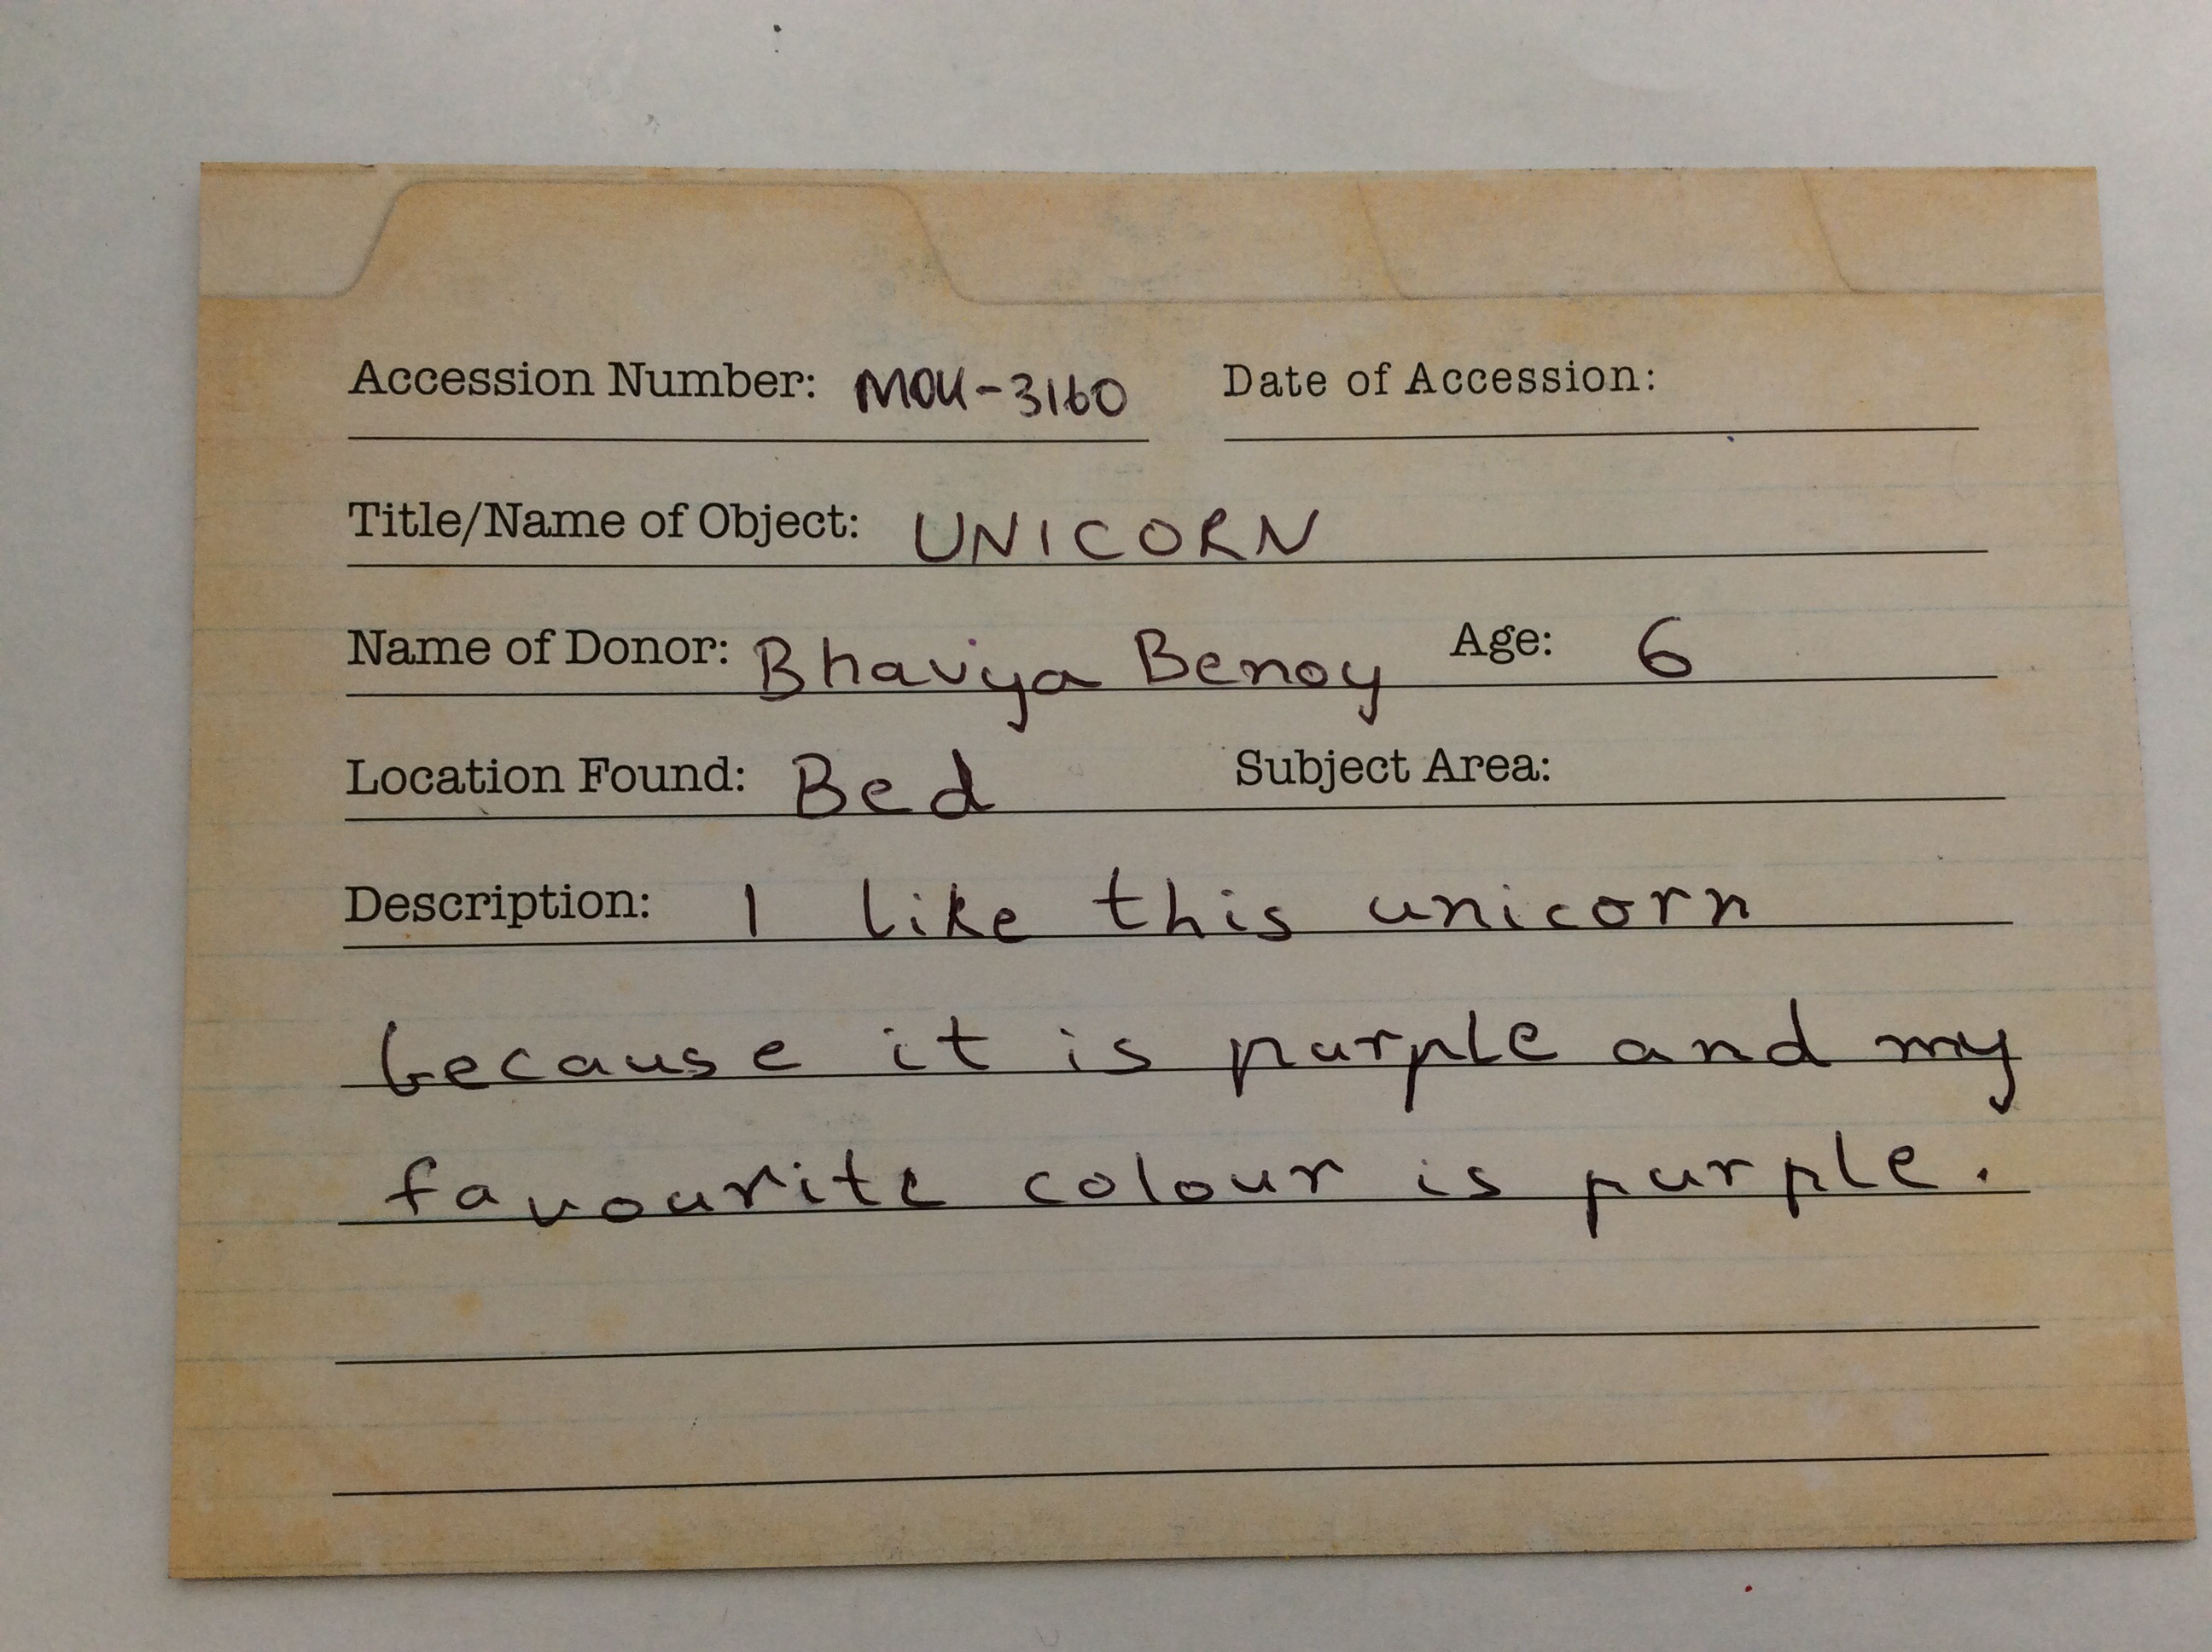 Accession Number: MOU-3160 Date of Accession:
Title/Name of Object: UNICORN
Name of Donor: Bhavya Benoy Age: 6
Location Found: Bed Subject Area:
Description: I like this unicorn
because it is purple and my
favourite colour is purple.